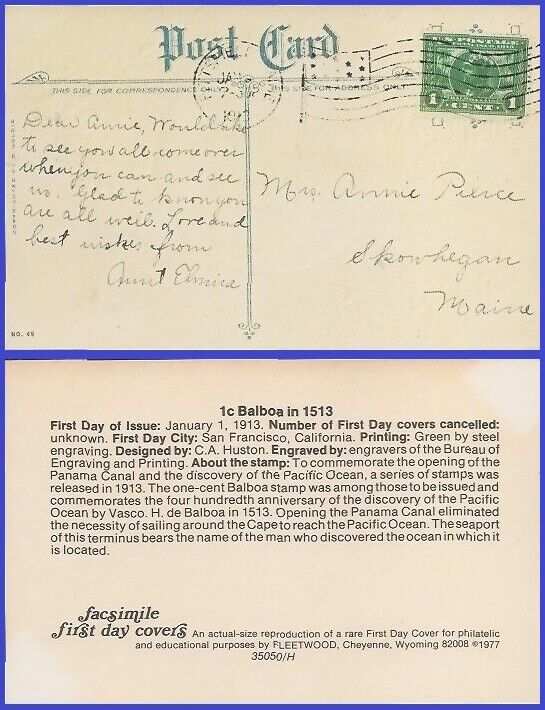 Post Card
THIS SIDE FOR CORRESPONDENCE ONLY
THIS SIDE FOR ADDRESS ONLY
1 CENT 1
Dear Annie, Would like
to see you all come over
when you can and see
us. Glad to know you
are all well. Love and
best wishes from
Aunt Elmira
Mrs Annie Pierce
Skowhegan
Maine
NO. 45
1c Balboa in 1513
First Day of Issue: January 1, 1913. Number of First Day covers cancelled:
unknown. First Day City: San Francisco, California. Printing: Green by steel
engraving. Designed by: C.A. Huston. Engraved by: engravers of the Bureau of
Engraving and Printing. About the stamp: To commemorate the opening of the
Panama Canal and the discovery of the Pacific Ocean, a series of stamps was
released in 1913. The one-cent Balboa stamp was among those to be issued and
commemorates the four hundredth anniversary of the discovery of the Pacific
Ocean by Vasco. H. de Balboa in 1513. Opening the Panama Canal eliminated
the necessity of sailing around the Cape to reach the Pacific Ocean. The seaport
of this terminus bears the name of the man who discovered the ocean in which it
is located.
facsimile
first day covers An actual-size reproduction of a rare First Day Cover for philatelic
and educational purposes by FLEETWOOD, Cheyenne, Wyoming 82008 ©1977
35050/H